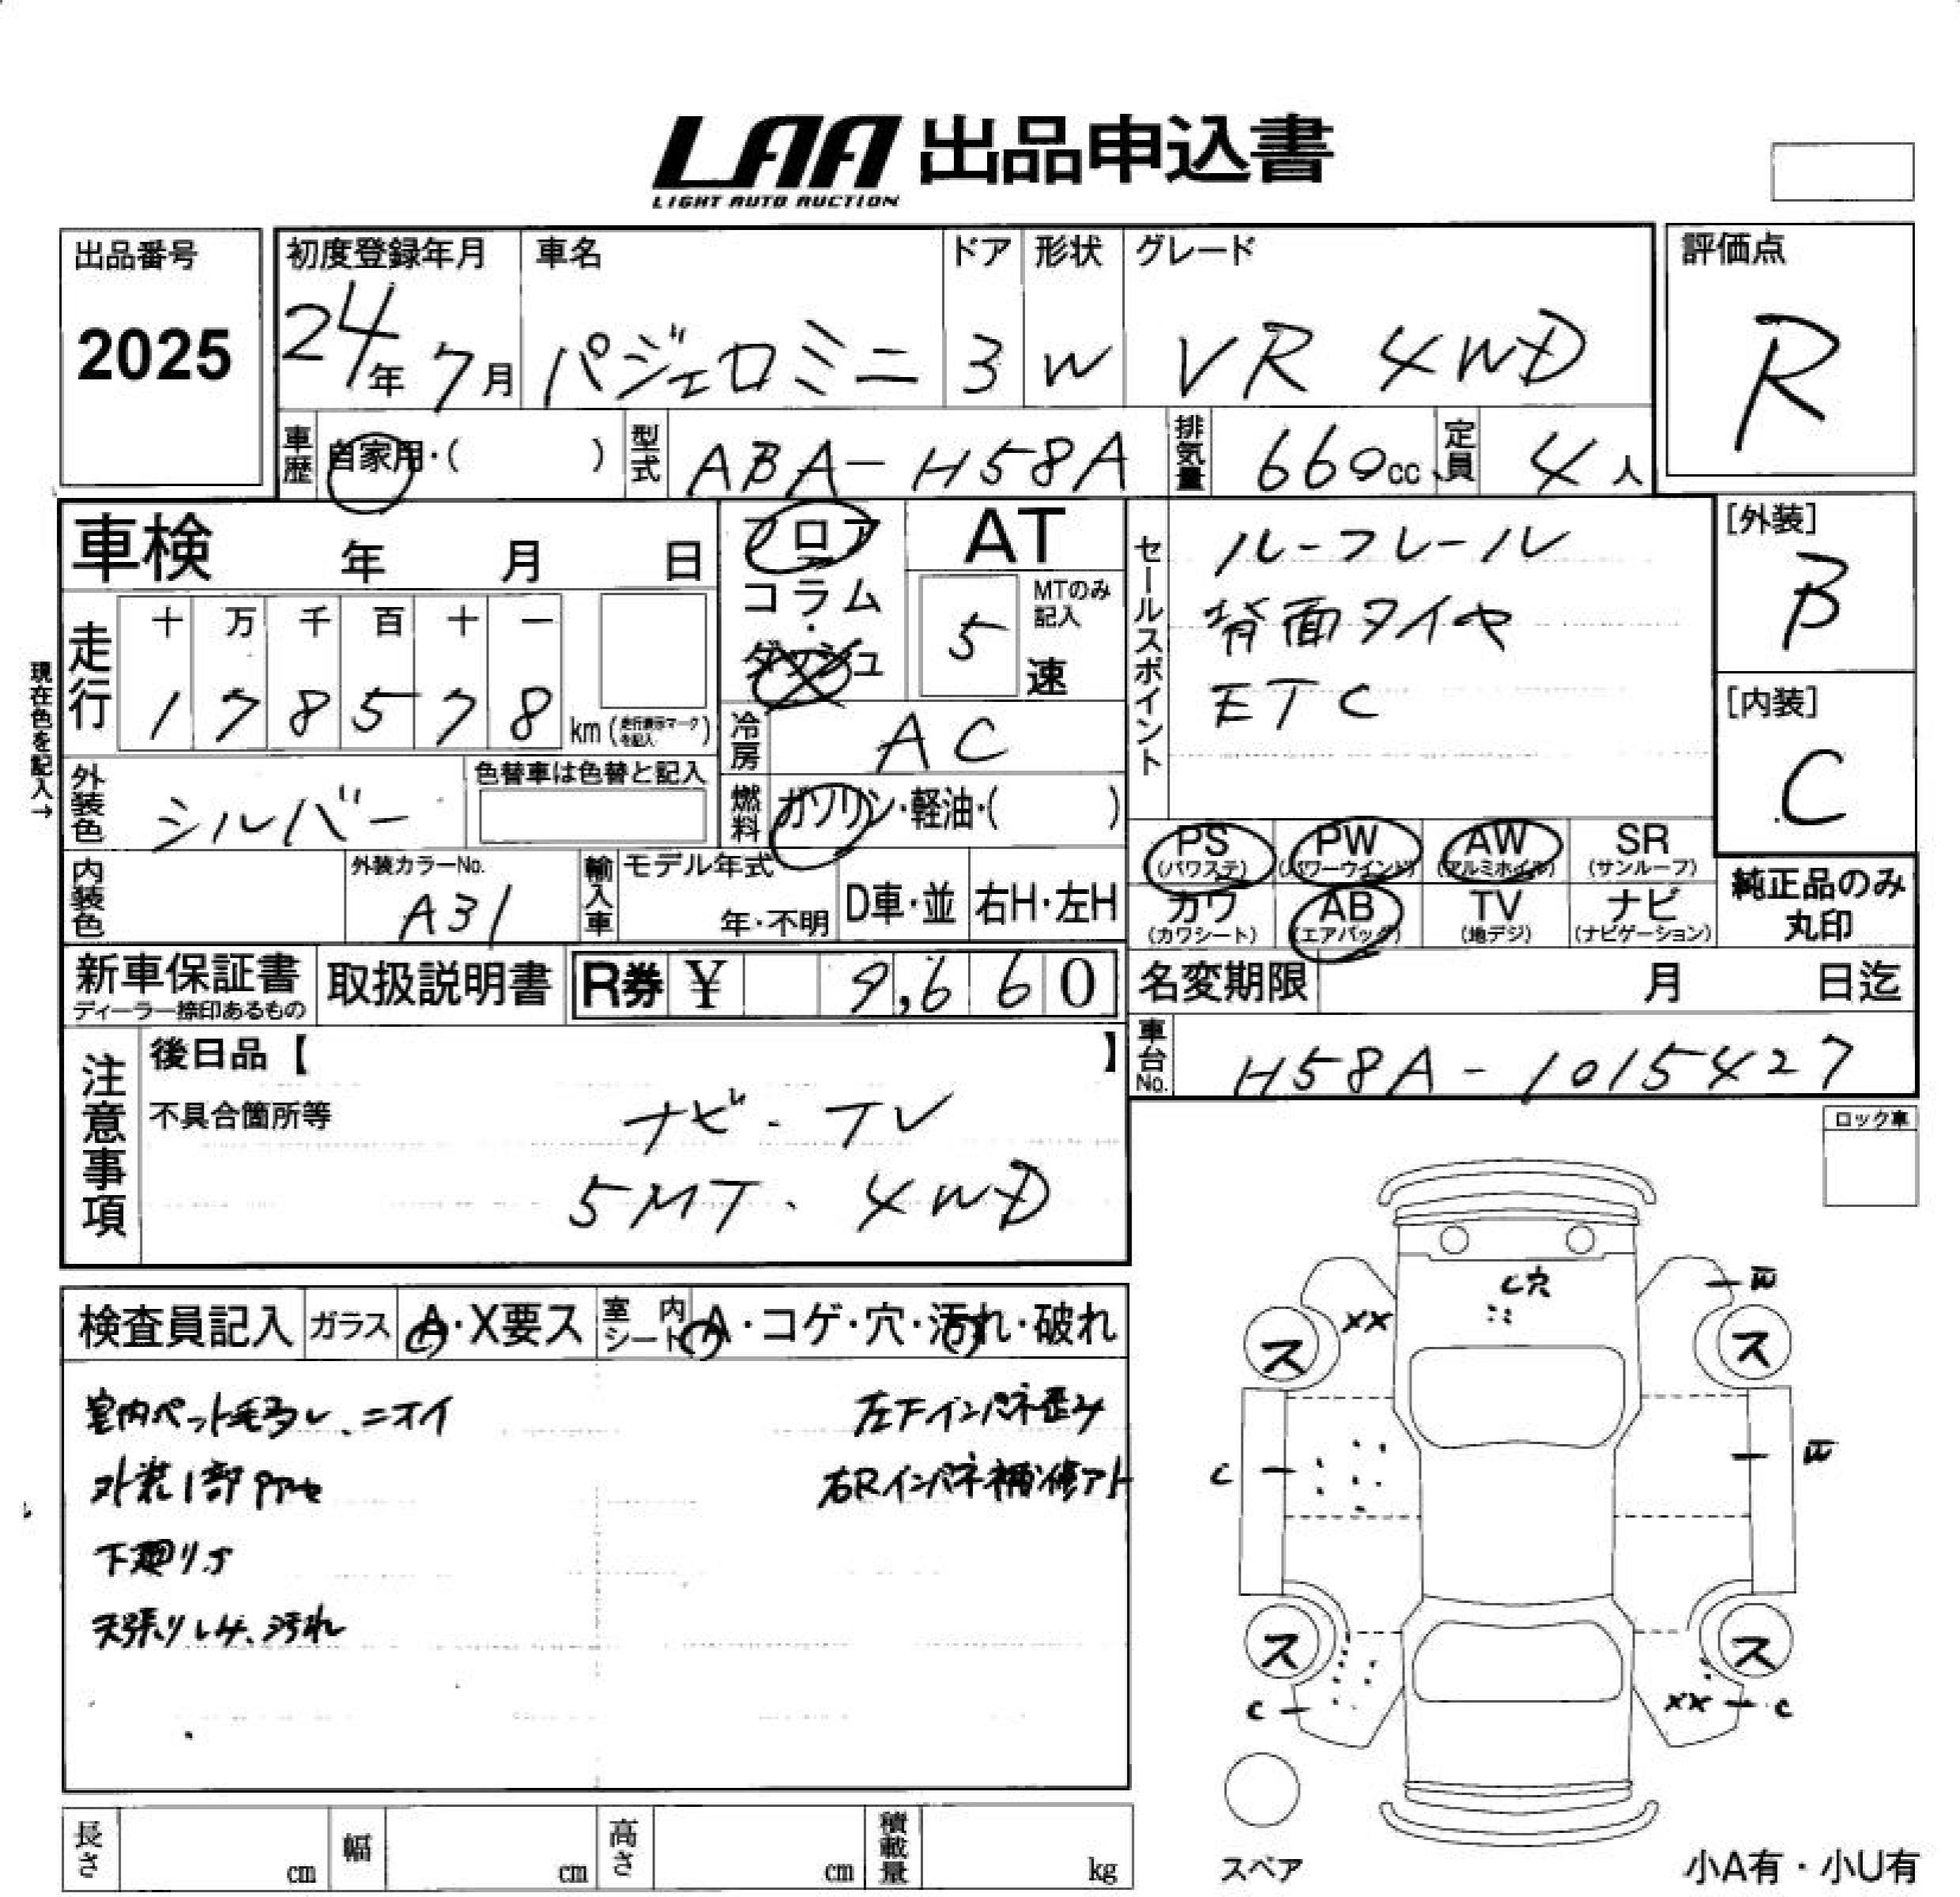 LAA 出品申込書
LIGHT AUTO AUCTION
出品番号
2025
初度登録年月
24年 7月
車名
パジェロミニ
ドア
3
形状
W
グレード
VR 4WD
評価点
R
車歴
自家用・( )
型式
ABA-H58A
排気量
660cc
定員
4人
車検 年 月 日
フロア
コラム
・
ダッシュ
AT
MTのみ
記入
5
速
セールスポイント
ルーフレール
背面タイヤ
ETC
[外装]
B
[内装]
C
現在色を記入→
走行
十 万 千 百 十 一
1 7 8 5 7 8
km (走行表示マークを記入)
冷房
AC
外装色
シルバー
色替車は色替と記入
燃料
ガソリン・軽油・( )
PS PW AW SR
(パワステ) (パワーウインド) (アルミホイル) (サンルーフ)
カワ AB TV ナビ
(カワシート) (エアバッグ) (地デジ) (ナビゲーション)
純正品のみ
丸印
内装色
外装カラーNo.
A31
輸入車
モデル年式
年・不明
D車・並
右H・左H
新車保証書
ディーラー捺印あるもの
取扱説明書
R券 ¥ 9,660
名変期限 月 日迄
車台No.
H58A-1015427
注意事項
後日品【 】
不具合箇所等
ナビ・TV
5MT、4WD
ロック車
検査員記入
ガラス
A・X要ス
室内
シート
A・コゲ・穴・汚れ・破れ
室内ペット毛多し、ニオイ
外装1部
下廻りサ
天張りシミ、汚れ
左Fインパネ歪み
右Rインパネ補修アト
C穴
XX
W
ス
ス
C
W
ス
ス
C
XX
C
スペア
小A有・小U有
長さ cm
幅 cm
高さ cm
積載量 kg